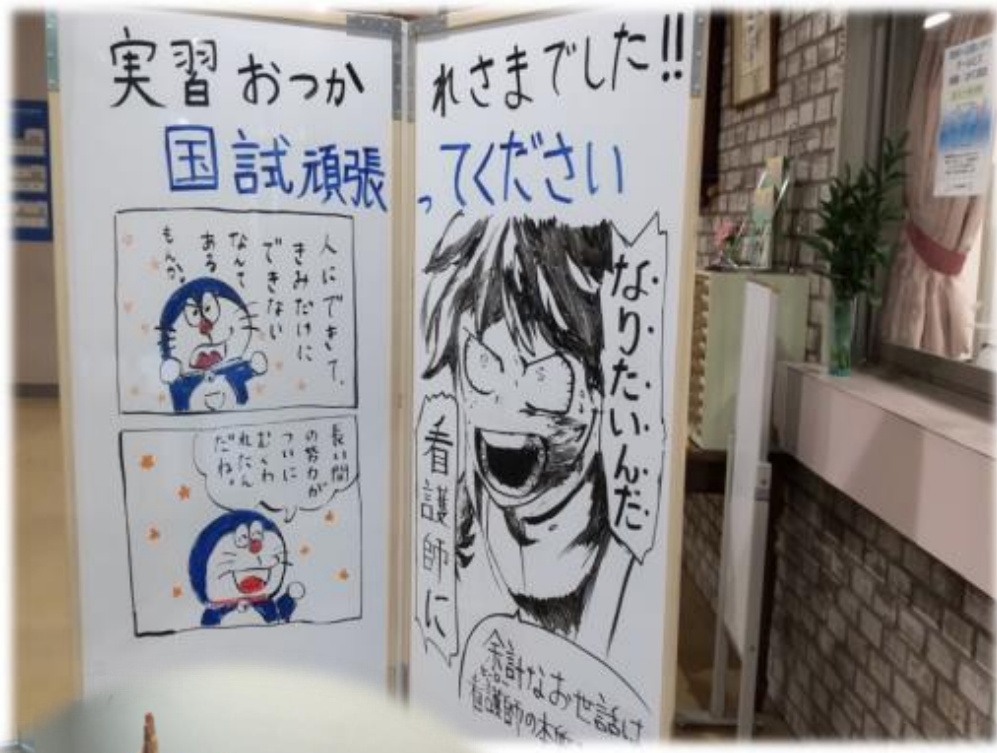 実習おつかれさまでした!!
国試頑張ってください
人にできて、
きみだけに
できない
なんて
ある
もんか。
長い間
の努力が
ついに
むくわ
れたたん
だね。
なりたいんだ
看護師に
余計なお世話は
看護師の本